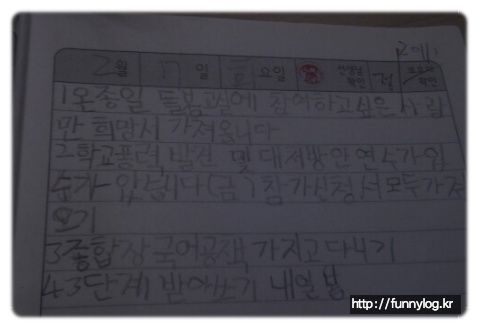 2월 17일 요일 선생님 확인 부모님 확인
1온종일 돌봄교실에 참여하고싶은 사람
만 희망서 가져옵니다
2학교폭력 발견 및 대처방안연수가입
수가 있습니다(금) 참가신청서모두가져
오기
3종합장국어공책 가지고다니기
4.3단계 받아쓰기 내일봄
http://funnylog.kr